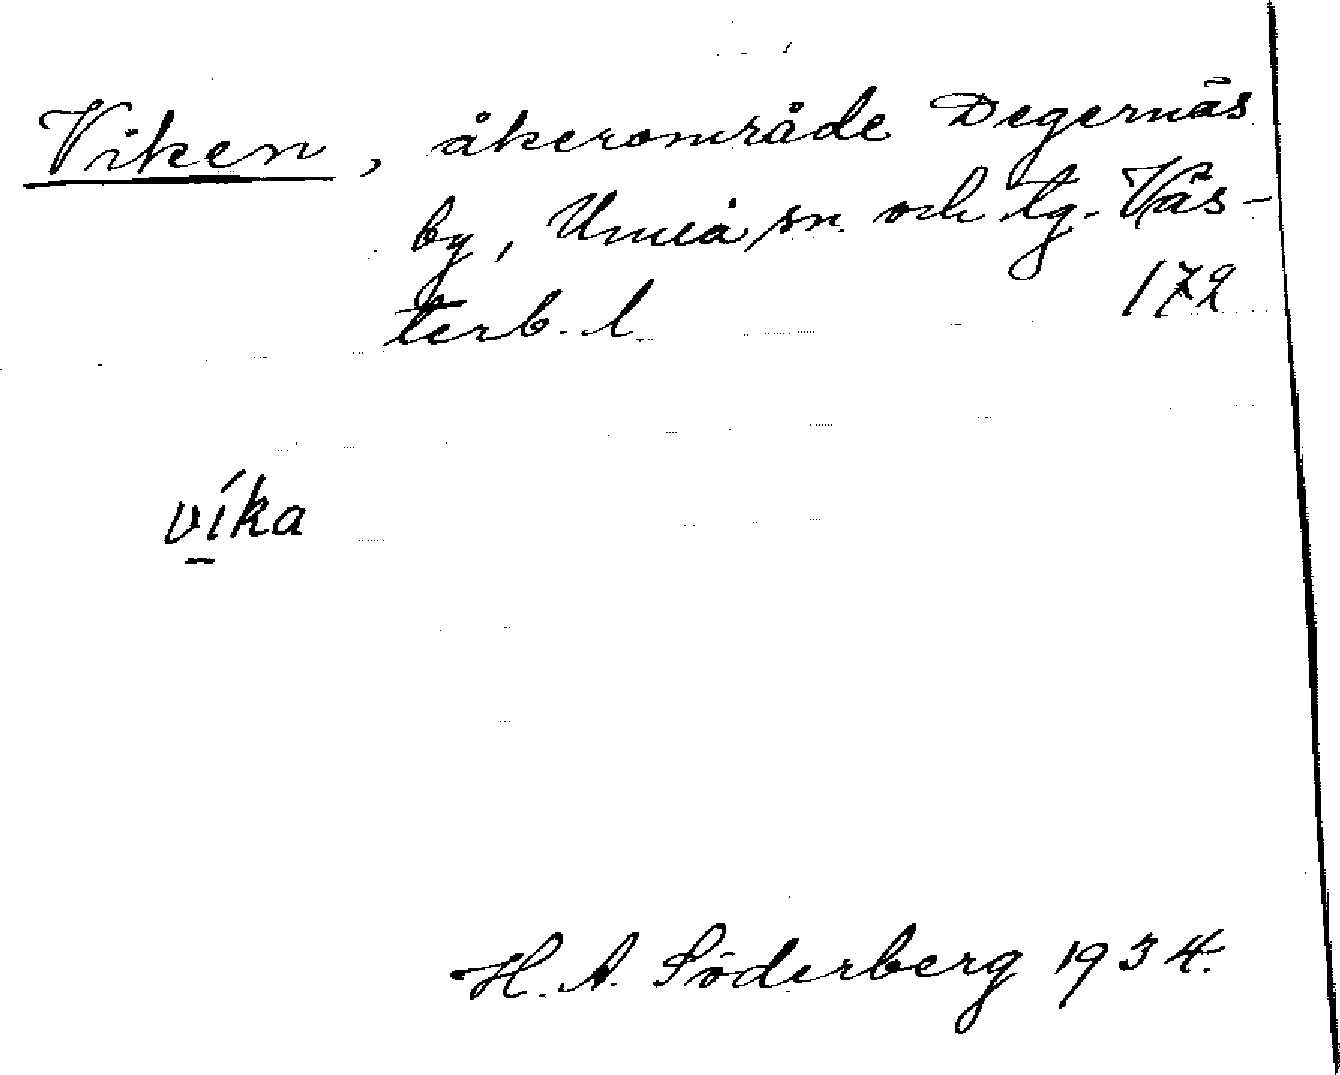 Viken, åkerområde Degernäs
by, Umeå sn och tg. Väs-
terb. l. 172
víka
H. A. Söderberg 1934.